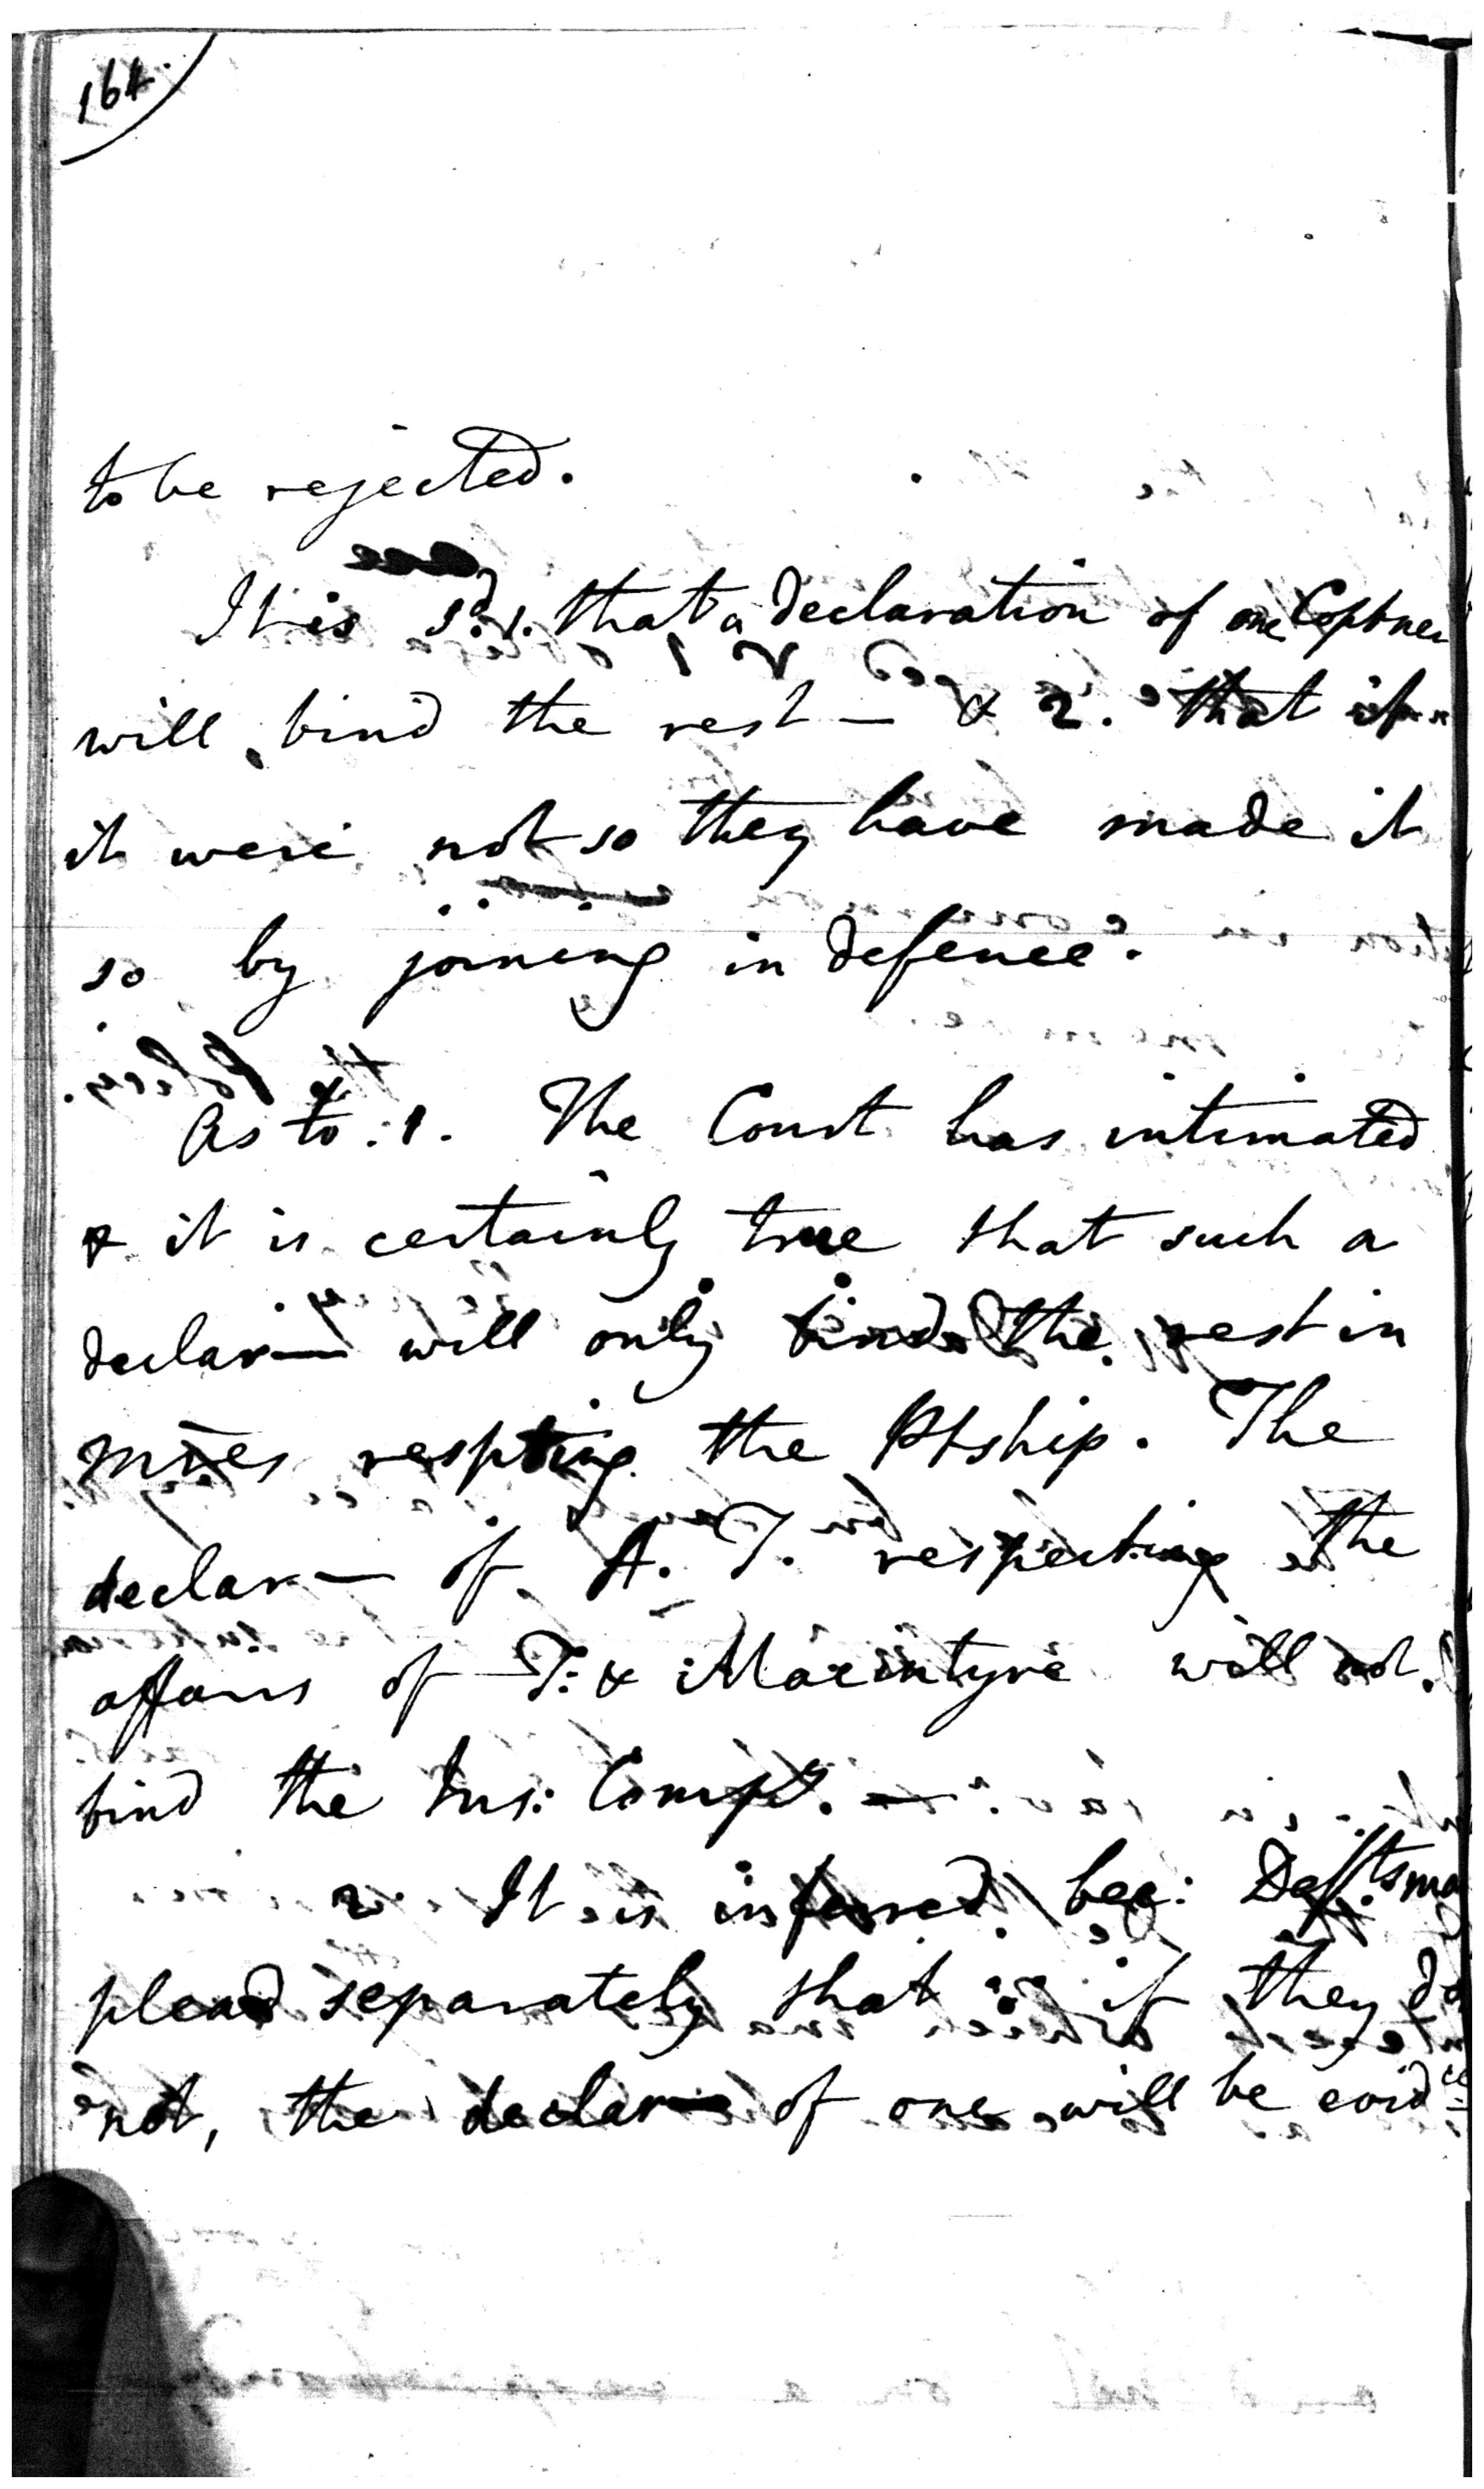 164
to be rejected.
It is sd. 1. that a declaration of one Coptner
will bind the rest — & 2. that if
it were not so they have made it
so by joining in defence.
As to 1. The Court has intimated
& it is certainly true that such a
declar— will only bind the rest in
mres respting the Ptship. The
declar— of A. T. respecting the
affairs of T. & Macintyre will not
bind the Ins: Compy. —
2 It is inferred bec: Defts may
plead separately that if they do
not, the declar— of one will be evidce